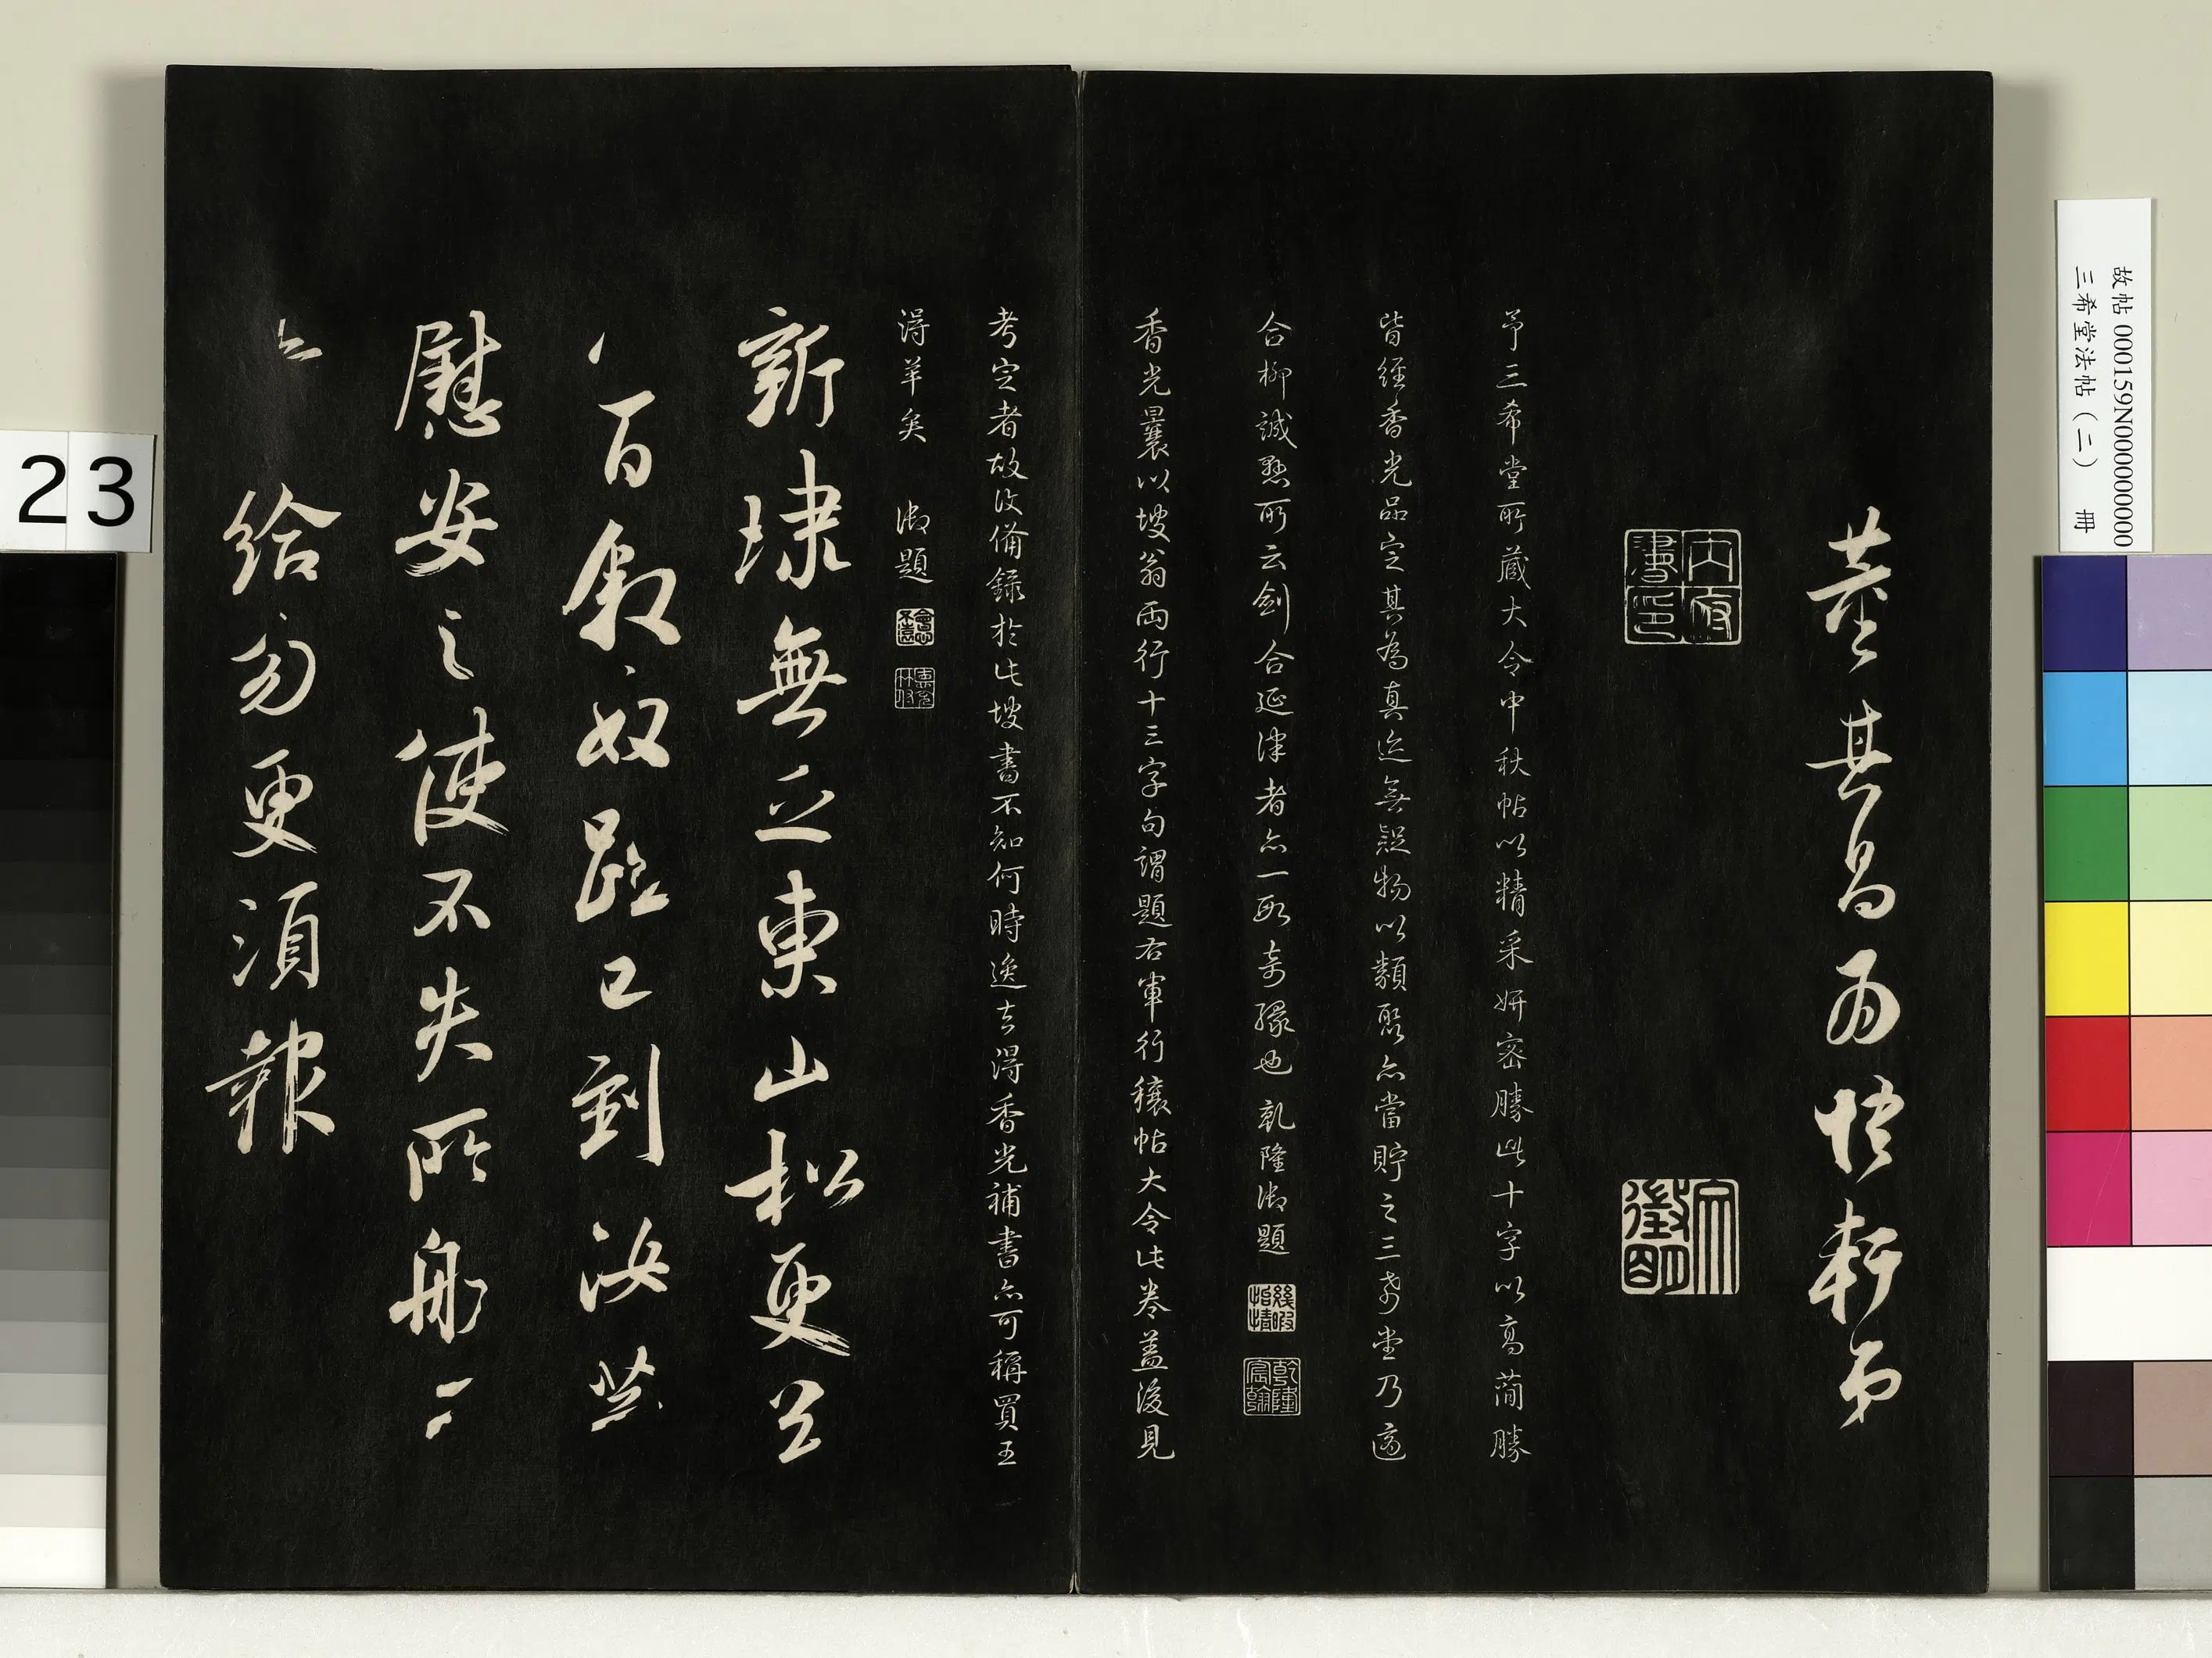 董其昌為悟軒弟
內府書印
予三希堂所藏大令中秋帖以精采妍密勝此十字以高簡勝
皆經香光品定其為真迹無疑物以類聚亦當貯之三希堂乃適
合柳誠懸所云劍合延津者亦一段奇緣也 乾隆御題
乾隆宸翰
香光曩以坡翁兩行十三字句謂題右軍行穰帖大令此卷蓋後見
考定者故汝備錄於此坡書不知何時逸去得香光補書亦可稱買王
得羊矣 御題
會心不遠
德充符
新埭無乏東山松更
百敘奴已到汝
慰安之使不失所
給勿更須報
故帖 000159N000000000
三希堂法帖(二) 冊
23